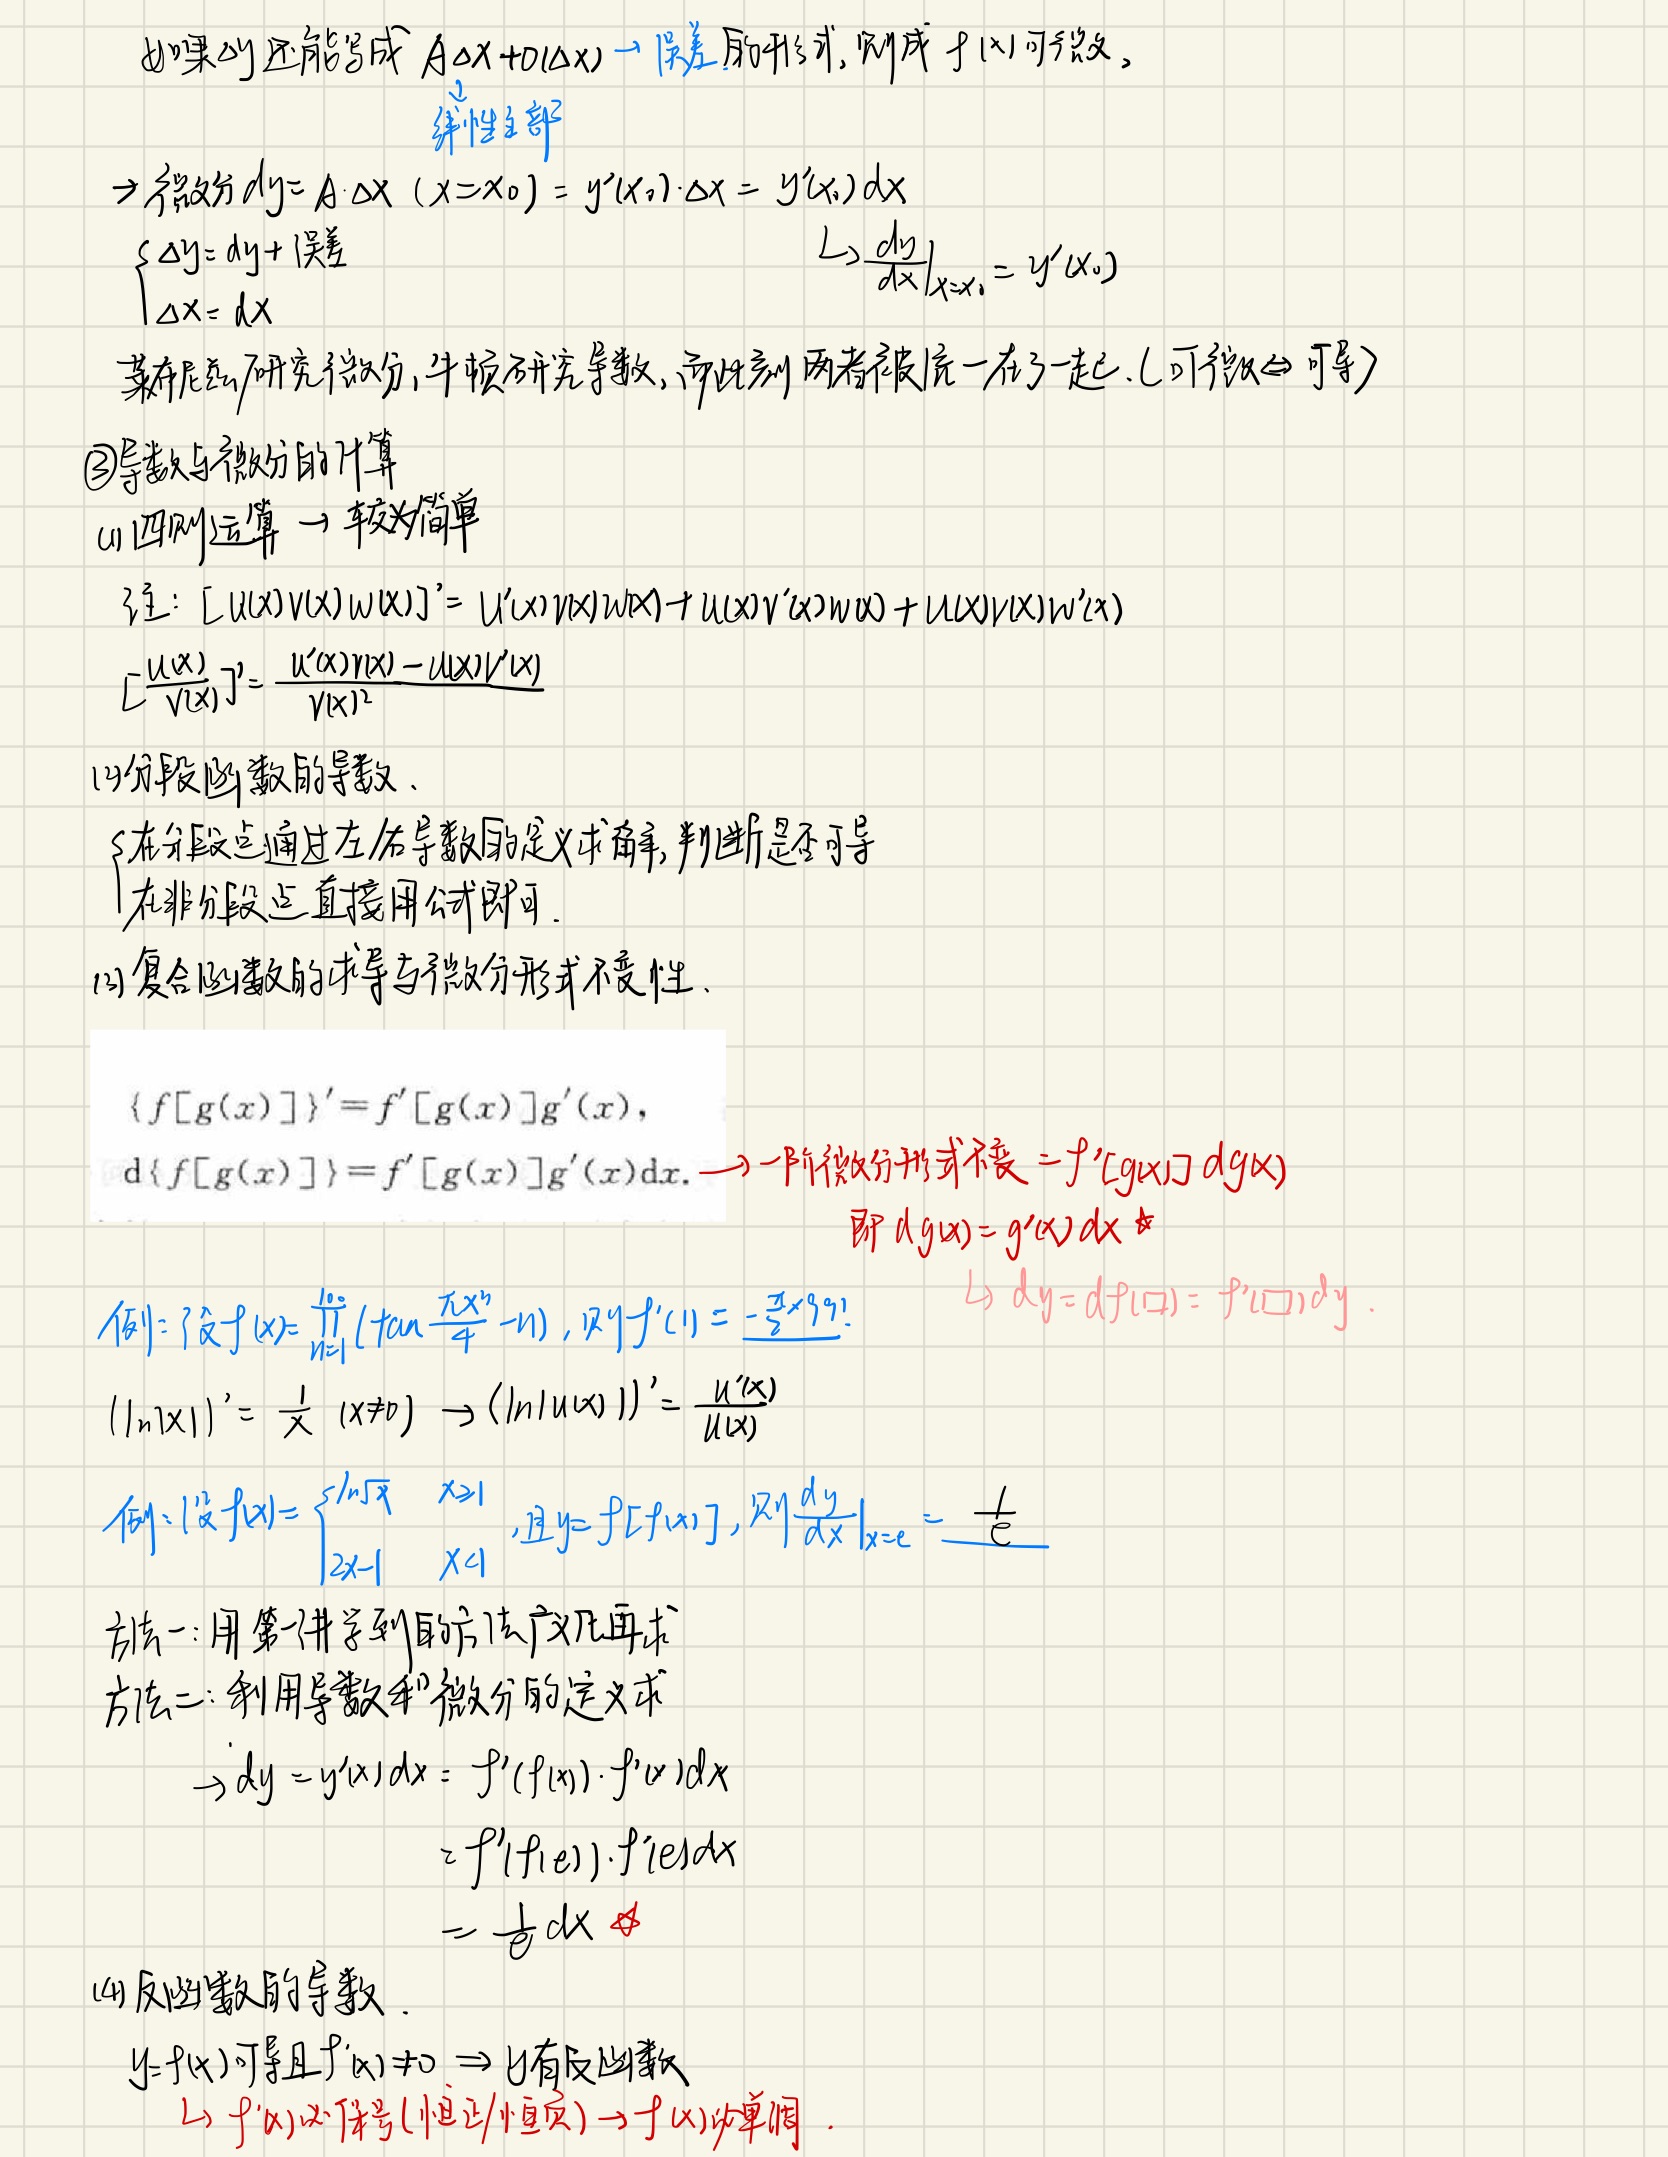 如果Δy还能写成 AΔx+o(Δx) → 误差 的形式,则成 f(x)可微,
↓
线性主部
→ 微分dy=A·Δx (x=x₀) = y'(x₀)·Δx = y'(x₀)dx
{ Δy=dy+误差
↳ dy/dx|x=x₀ = y'(x₀)
Δx=dx
莱布尼兹研究微分,牛顿研究导数,而此刻两者被统一在了一起.(可微⇔可导)
③导数与微分的计算
(1)四则运算 → 较为简单
注: [u(x)v(x)w(x)]'= u'(x)v(x)w(x)+u(x)v'(x)w(x)+u(x)v(x)w'(x)
[u(x)/v(x)]'= (u'(x)v(x)-u(x)v'(x))/v(x)²
(2)分段函数的导数.
{ 在分段点通过左/右导数的定义求解,判断是否可导
在非分段点直接用公式即可.
(3)复合函数的求导与微分形式不变性.
{f[g(x)]}'=f'[g(x)]g'(x),
d{f[g(x)]}=f'[g(x)]g'(x)dx. → 一阶微分形式不变 = f'[g(x)] dg(x)
即 dg(x)=g'(x)dx ☆
↳ dy=df(□)= f'(□)dy .
例:设f(x)=∏ₙ₌₁¹⁰⁰(tan πxⁿ/4 -n),则f'(1)= -π/2×99!.
(ln|x|)'= 1/x (x≠0) → (ln|u(x)|)'= u'(x)/u(x)
例:设f(x)= { ln√x x≥1 ,且y=f[f(x)],则dy/dx|x=e = 1/e
2x-1 x<1
方法一:用第一讲学到的方法广义化再求
方法二:利用导数和微分的定义求
→ dy=y'(x)dx= f'(f(x))·f'(x)dx
= f'(f(e))·f'(e)dx
= 1/e dx ☆
(4)反函数的导数.
y=f(x)可导且f'(x)≠0 ⇒ y有反函数
↳ f'(x)必保号(恒正/恒负)→f(x)必单调 .